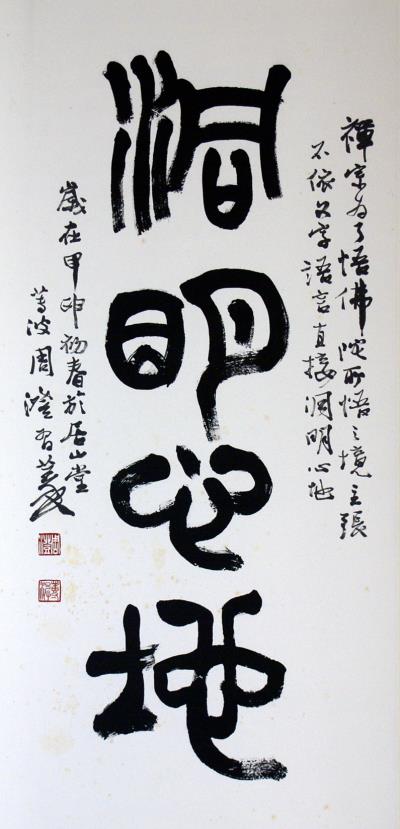 禪宗為了悟佛陀所悟之境主張
不依文字語言直接洞明心地
洞明心地
歲在甲申初春於居山堂
蓴波周澄